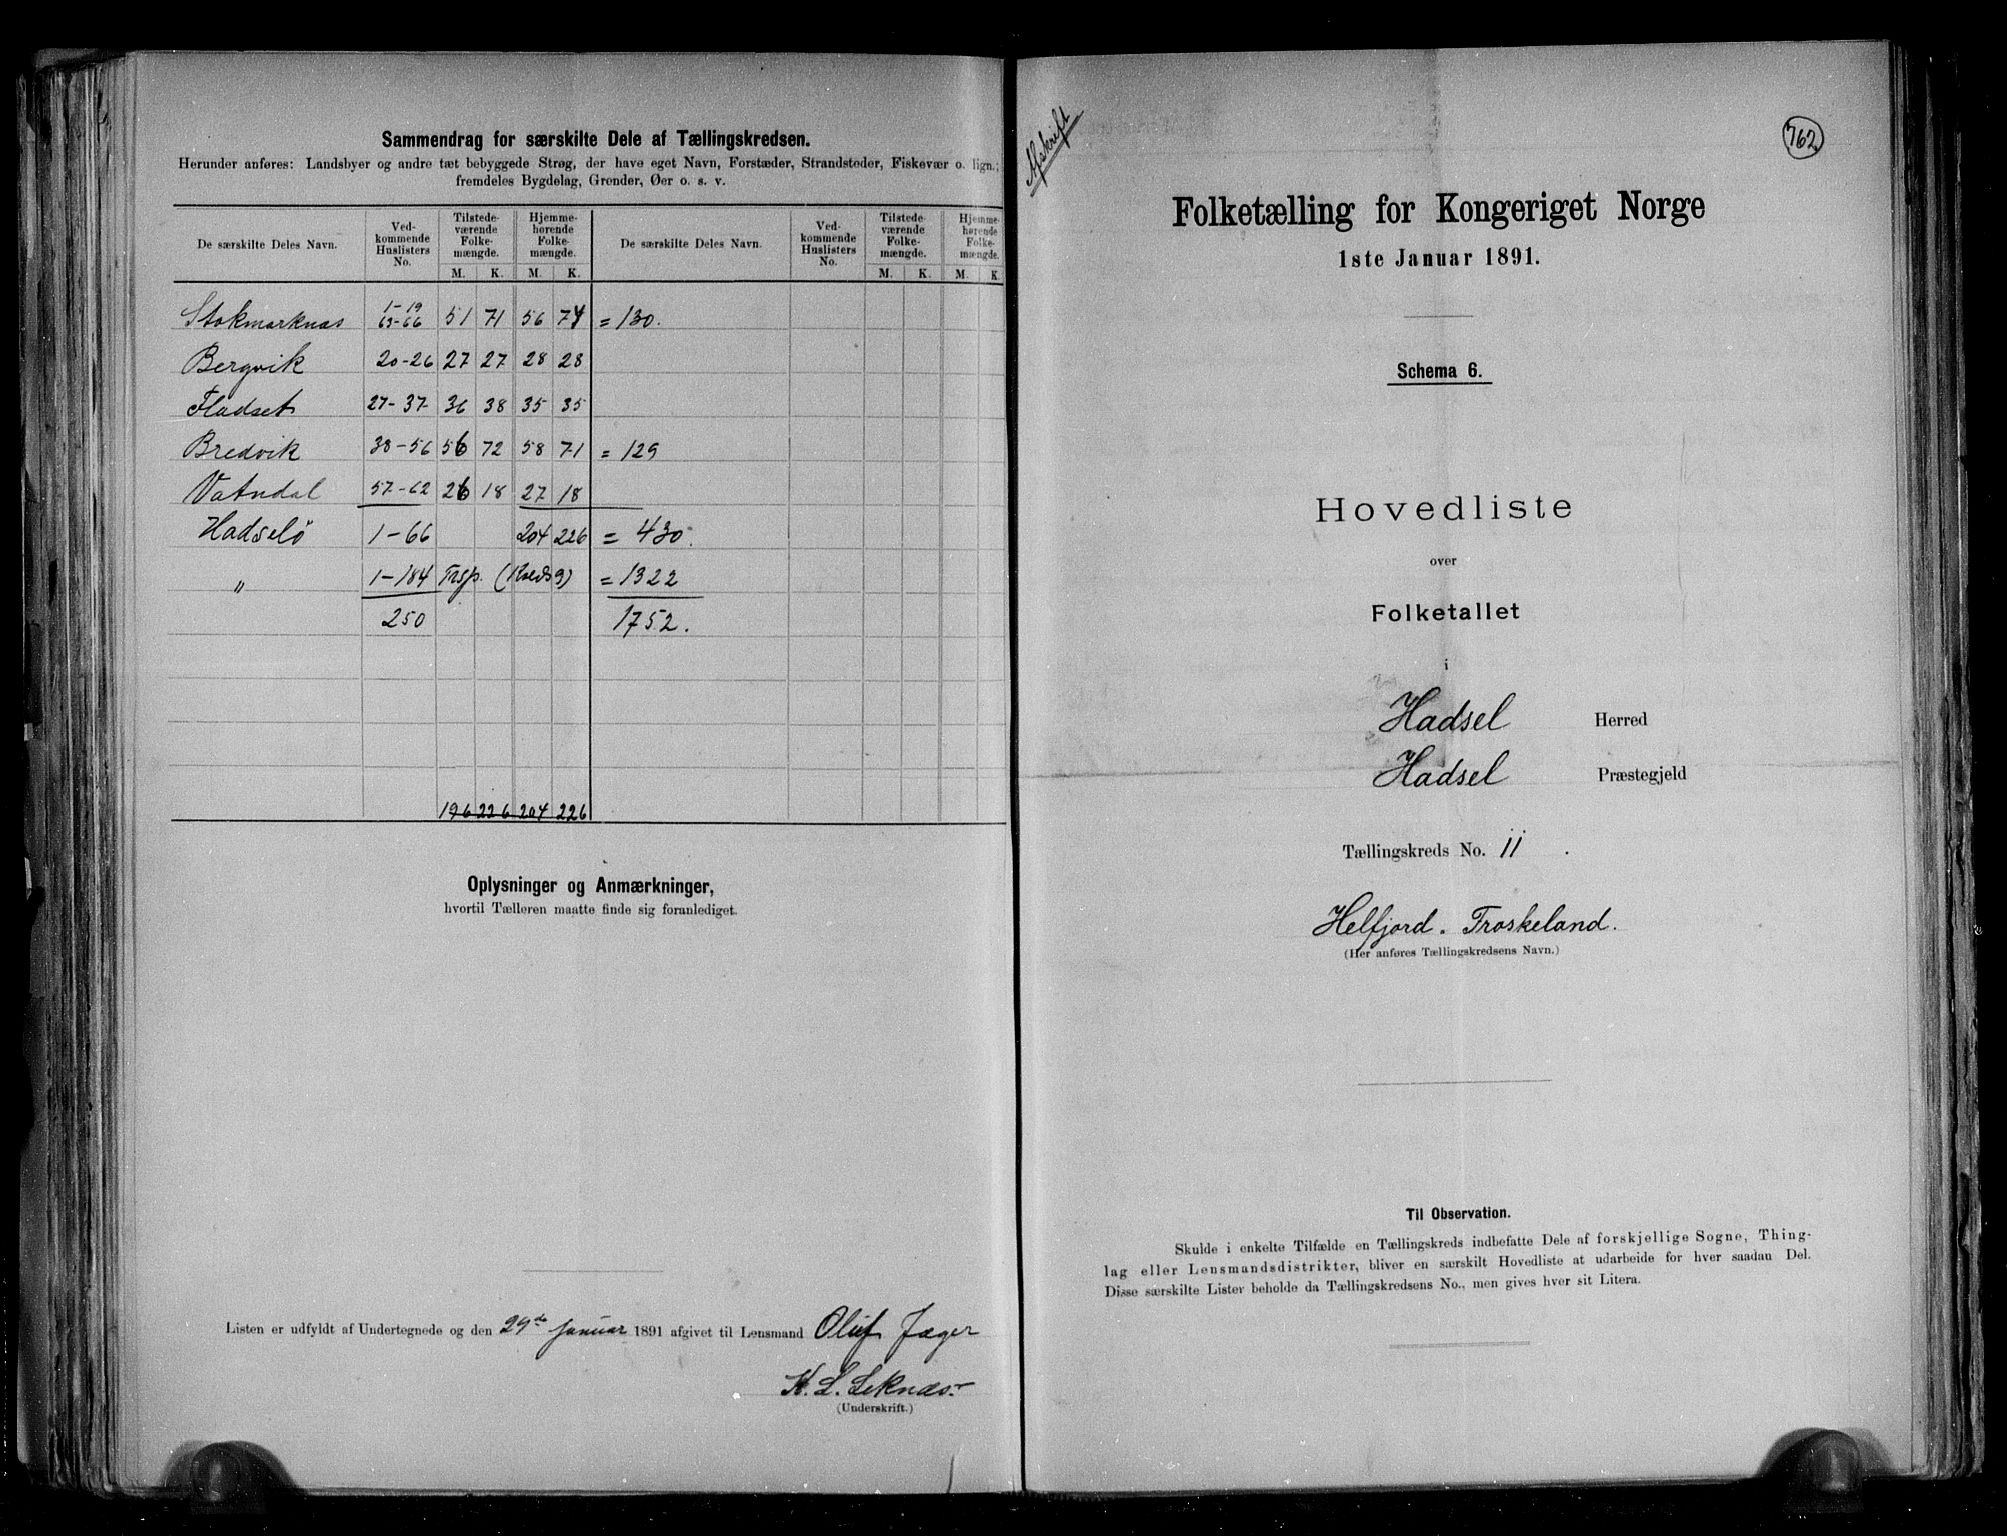 Sammendrag for særskilte Dele af Tællingskredsen.
Herunder anføres: Landsbyer og andre tæt bebyggede Strøg, der have eget Navn, Forstæder, Strandsteder, Fiskevær o. lign.;
fremdeles Bygdelag, Grender, Øer o. s. v.
De særskilte Deles Navn. Ved-kommende Huslisters No. Tilstede-værende Folke-mængde. Hjemme-hørende Folke-mængde. De særskilte Deles Navn. Ved-kommende Huslisters No. Tilstede-værende Folke-mængde. Hjemme-hørende Folke-mængde.
M. K. M. K. M. K. M. K.
Stokmarknæs 1-19 63-66 51 71 56 74 = 130.
Bergvik 20-26 27 27 28 28
Fladset 27-37 36 38 35 35
Bredvik 38-56 56 72 58 71 = 129
Vatndal 57-62 26 18 27 18
Hadselö 1-66 204 226 = 430.
" 1-184 Trsp. (Kreds 9) = 1322
250 1752.
196 226 204 226
Oplysninger og Anmærkninger,
hvortil Tælleren maatte finde sig foranlediget.
Listen er udfyldt af Undertegnede og den 29de Januar 1891 afgivet til Lensmand Oluf Jæger
K. L. Leknæs.
(Underskrift.)
Afskrift
762
Folketælling for Kongeriget Norge
1ste Januar 1891.
Schema 6.
Hovedliste
over
Folketallet
i
Hadsel Herred
Hadsel Præstegjeld
Tællingskreds No. 11.
Helfjord. Troskeland.
(Her anføres Tællingskredsens Navn.)
Til Observation.
Skulde i enkelte Tilfælde en Tællingskreds indbefatte Dele af forskjellige Sogne, Thing-
lag eller Lensmandsdistrikter, bliver en særskilt Hovedliste at udarbeide for hver saadan Del.
Disse særskilte Lister beholde da Tællingskredsens No., men gives hver sit Litera.